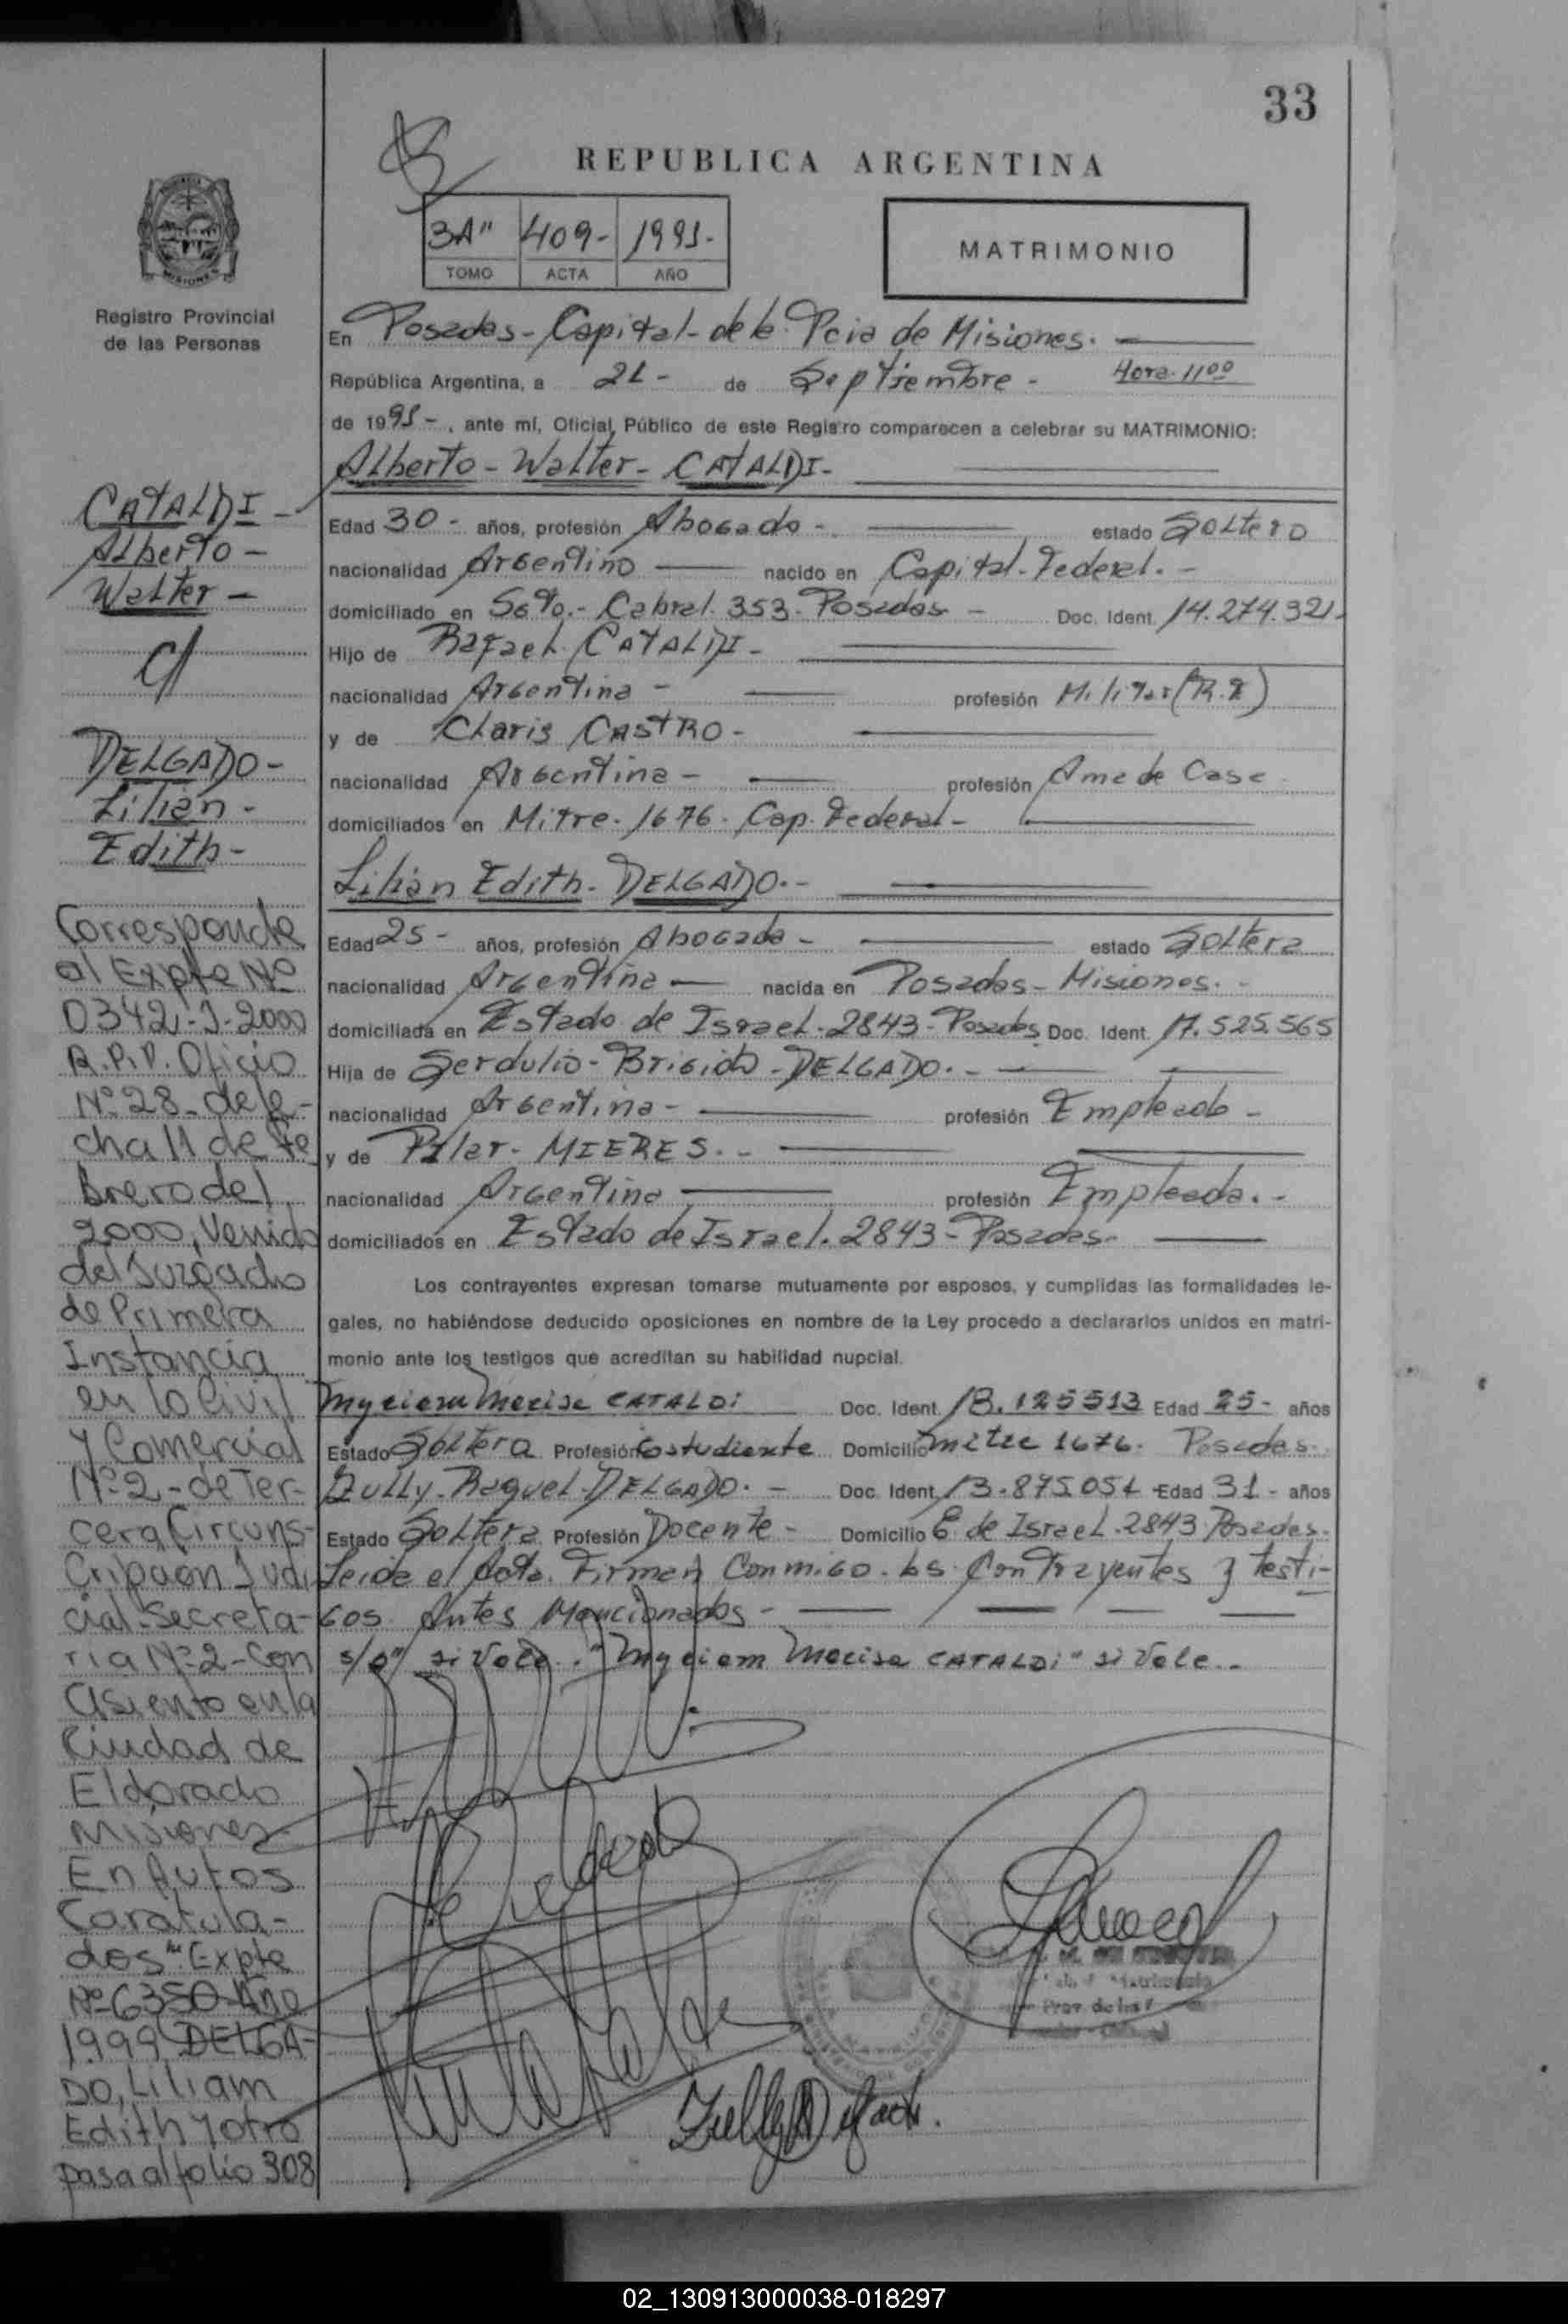 33
REPUBLICA ARGENTINA
3A" 409- 1991-
TOMO ACTA AÑO
MATRIMONIO
Registro Provincial
de las Personas
En Posadas - Capital - de la Pcia de Misiones. -
República Argentina, a 21 - de Septiembre - Hora 11oo
de 1991 -, ante mí, Oficial Público de este Registro comparecen a celebrar su MATRIMONIO:
Alberto - Walter - CATALDI -
Edad 30 - años, profesión Abogado - estado Soltero
nacionalidad Argentino nacido en Capital - Federal. -
domiciliado en Sgto. - Cabral. 353 - Posadas - Doc. Ident. 14.274.321-
Hijo de Rafael CATALDI -
nacionalidad Argentina - profesión Militar (R.E)
y de Claris CASTRO -
nacionalidad Argentina - profesión Ama de Casa
domiciliados en Mitre. 1676. Cap. Federal -
Lilian Edith - DELGADO. -
Edad 25 - años, profesión Abogada - estado Soltera
nacionalidad Argentina nacida en Posadas - Misiones. -
domiciliada en Estado de Israel. 2843 - Posadas Doc. Ident. 17.525.565
Hija de Serdulio - Brigido - DELGADO. -
nacionalidad Argentina - profesión Empleado -
y de Pilar - MIERES. -
nacionalidad Argentina profesión Empleada. -
domiciliados en Estado de Israel. 2843 - Posadas -
Los contrayentes expresan tomarse mutuamente por esposos, y cumplidas las formalidades le-
gales, no habiéndose deducido oposiciones en nombre de la Ley procedo a declararlos unidos en matri-
monio ante los testigos que acreditan su habilidad nupcial.
Myriam Marisa CATALDI Doc. Ident. 18.125513 Edad 25 - años
Estado Soltera Profesión Estudiante Domicilio mitre 1676. Posadas.
Zully - Raquel - DELGADO. - Doc. Ident. 13.875.051 Edad 31 - años
Estado Soltera Profesión Docente - Domicilio E. de Israel. 2843 Posadas.
Leida el Acta. Firman Conmigo. los Contrayentes y testi-
gos Antes Mencionados -
s/o" si Vale. "Myriam Marisa CATALDI" si Vale. -
Zully R Delgado.
CATALDI -
Alberto -
Walter -
DELGADO -
Lilian -
Edith -
Corresponde
al Expte Nº
0342-J-2000
R.P.P. Oficio
Nº 28 - de fe-
cha 11 de Fe
brero del
2000, Venido
del Juzgado
de Primera
Instancia
en lo Civil
y Comercial
Nº 2 - de Ter-
cera Circuns-
cripción Judi
cial Secreta-
ria Nº 2 - con
asiento en la
Ciudad de
Eldorado
Misiones
En Autos
Caratula-
dos "Expte
Nº 6350 Año
1999 DELGA-
DO, Liliam
Edith y otro
pasa al folio 308
02_130913000038-018297